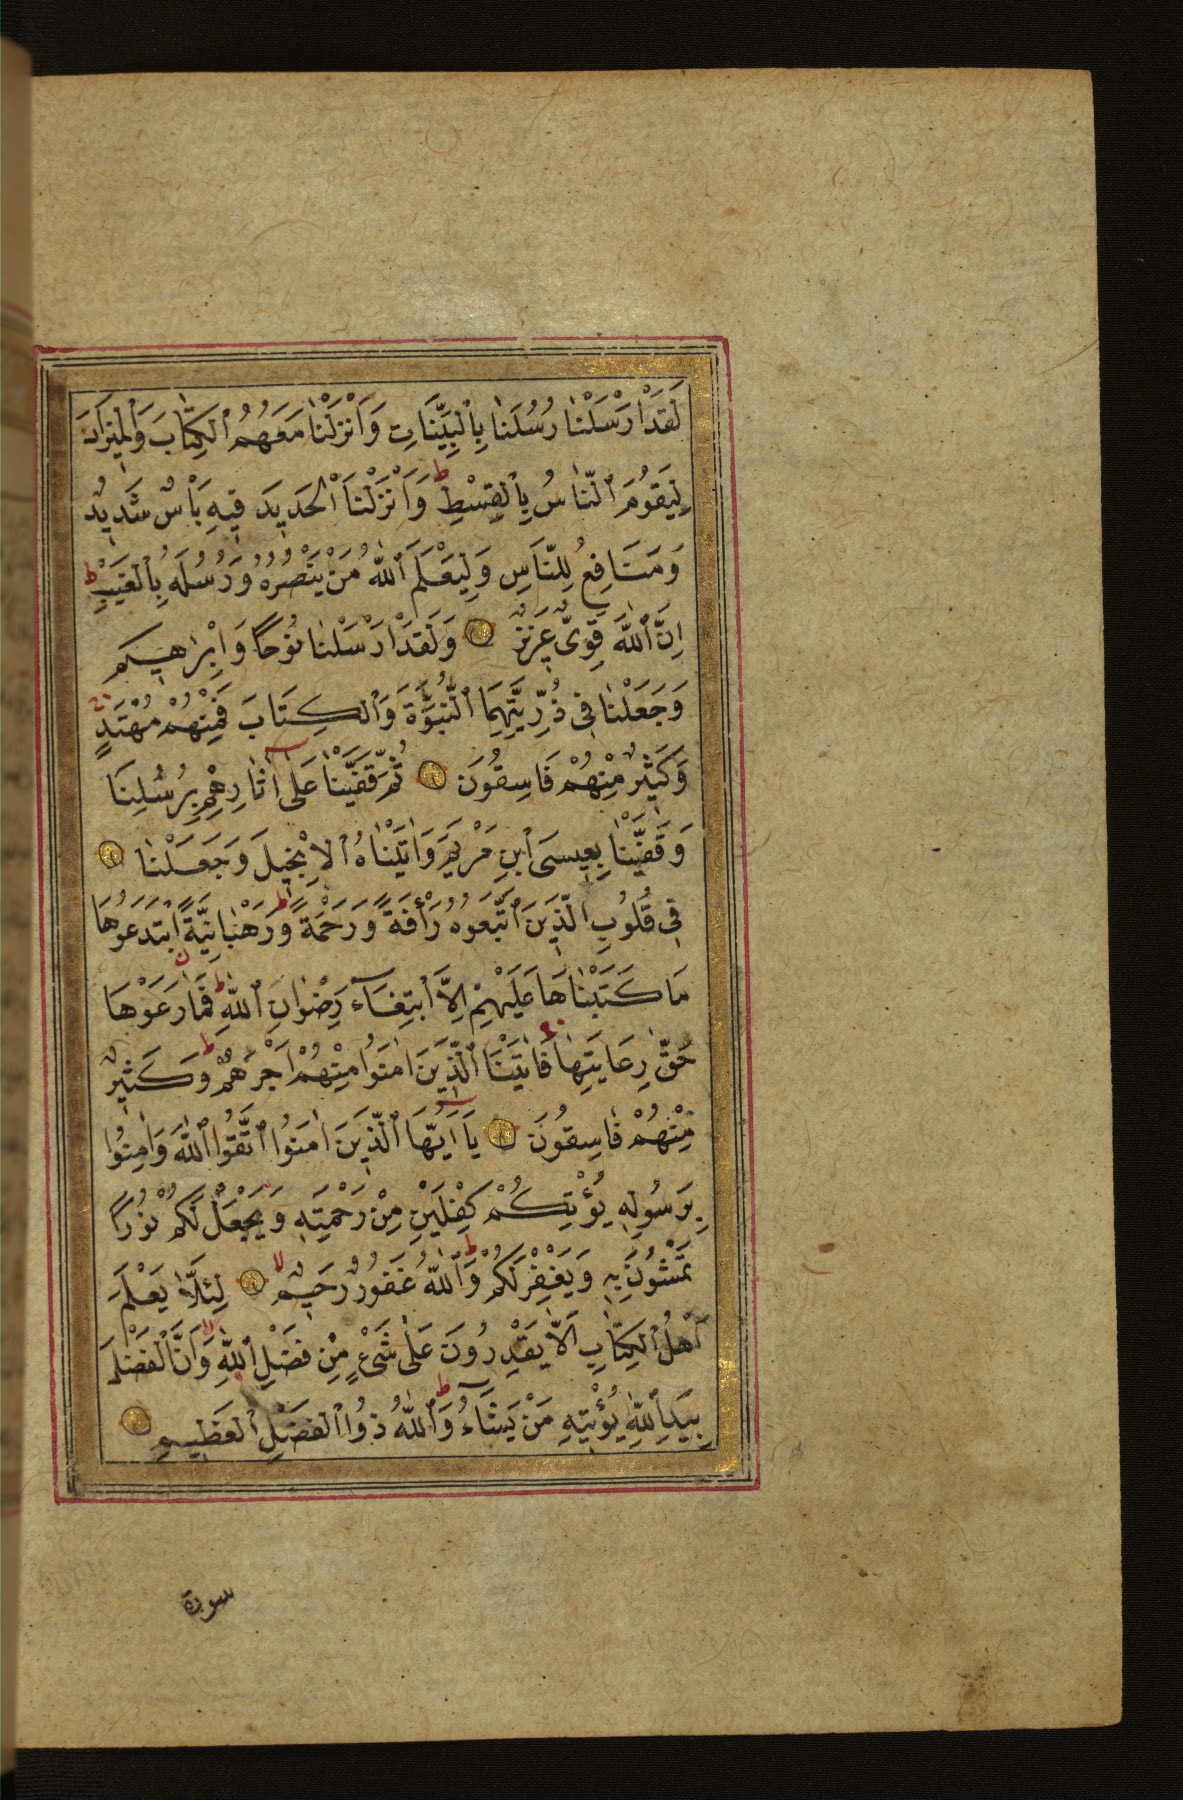 لَقَدْ اَرْسَلْنَا رُسُلَنَا بِالْبَيِّنَاتِ وَاَنْزَلْنَا مَعَهُمُ الْكِتَابَ وَالْمِيزَانَ
لِيَقُومَ النَّاسُ بِالْقِسْطِ ط وَاَنْزَلْنَا الْحَدِيدَ فِيهِ بَاْسٌ شَدِيدٌ
وَمَنَافِعُ لِلنَّاسِ وَلِيَعْلَمَ اللّٰهُ مَنْ يَنْصُرُهُ وَرُسُلَهُ بِالْغَيْبِ ط
اِنَّ اللّٰهَ قَوِىٌّ عَزِيزٌ وَلَقَدْ اَرْسَلْنَا نُوحًا وَاِبْرٰهِيمَ
وَجَعَلْنَا فِى ذُرِّيَّتِهِمَا النُّبُوَّةَ وَالْكِتَابَ فَمِنْهُمْ مُهْتَدٍ
وَكَثِيرٌ مِنْهُمْ فَاسِقُونَ ثُمَّ قَفَّيْنَا عَلٰٓى اٰثَارِهِمْ بِرُسُلِنَا
وَقَفَّيْنَا بِعِيسَى ابْنِ مَرْيَمَ وَاٰتَيْنَاهُ الْاِنْجِيلَ وَجَعَلْنَا
فِى قُلُوبِ الَّذِينَ اتَّبَعُوهُ رَاْفَةً وَرَحْمَةً ط وَرَهْبَانِيَّةً ابْتَدَعُوهَا
مَا كَتَبْنَاهَا عَلَيْهِمْ اِلَّا ابْتِغَآءَ رِضْوَانِ اللّٰهِ فَمَا رَعَوْهَا
حَقَّ رِعَايَتِهَا فَاٰتَيْنَا الَّذِينَ اٰمَنُوا مِنْهُمْ اَجْرَهُمْ ط وَكَثِيرٌ
مِنْهُمْ فَاسِقُونَ يَآ اَيُّهَا الَّذِينَ اٰمَنُوا اتَّقُوا اللّٰهَ وَاٰمِنُوا
بِرَسُولِهِ يُؤْتِكُمْ كِفْلَيْنِ مِنْ رَحْمَتِهِ وَيَجْعَلْ لَكُمْ نُورًا
تَمْشُونَ بِهِ وَيَغْفِرْ لَكُمْ ط وَاللّٰهُ غَفُورٌ رَحِيمٌ لا لِئَلَّا يَعْلَمَ
اَهْلُ الْكِتَابِ اَلَّا يَقْدِرُونَ عَلٰى شَىْءٍ مِنْ فَضْلِ اللّٰهِ لا وَاَنَّ الْفَضْلَ
بِيَدِ اللّٰهِ يُؤْتِيهِ مَنْ يَشَآءُ ط وَاللّٰهُ ذُو الْفَضْلِ الْعَظِيمِ
سورة